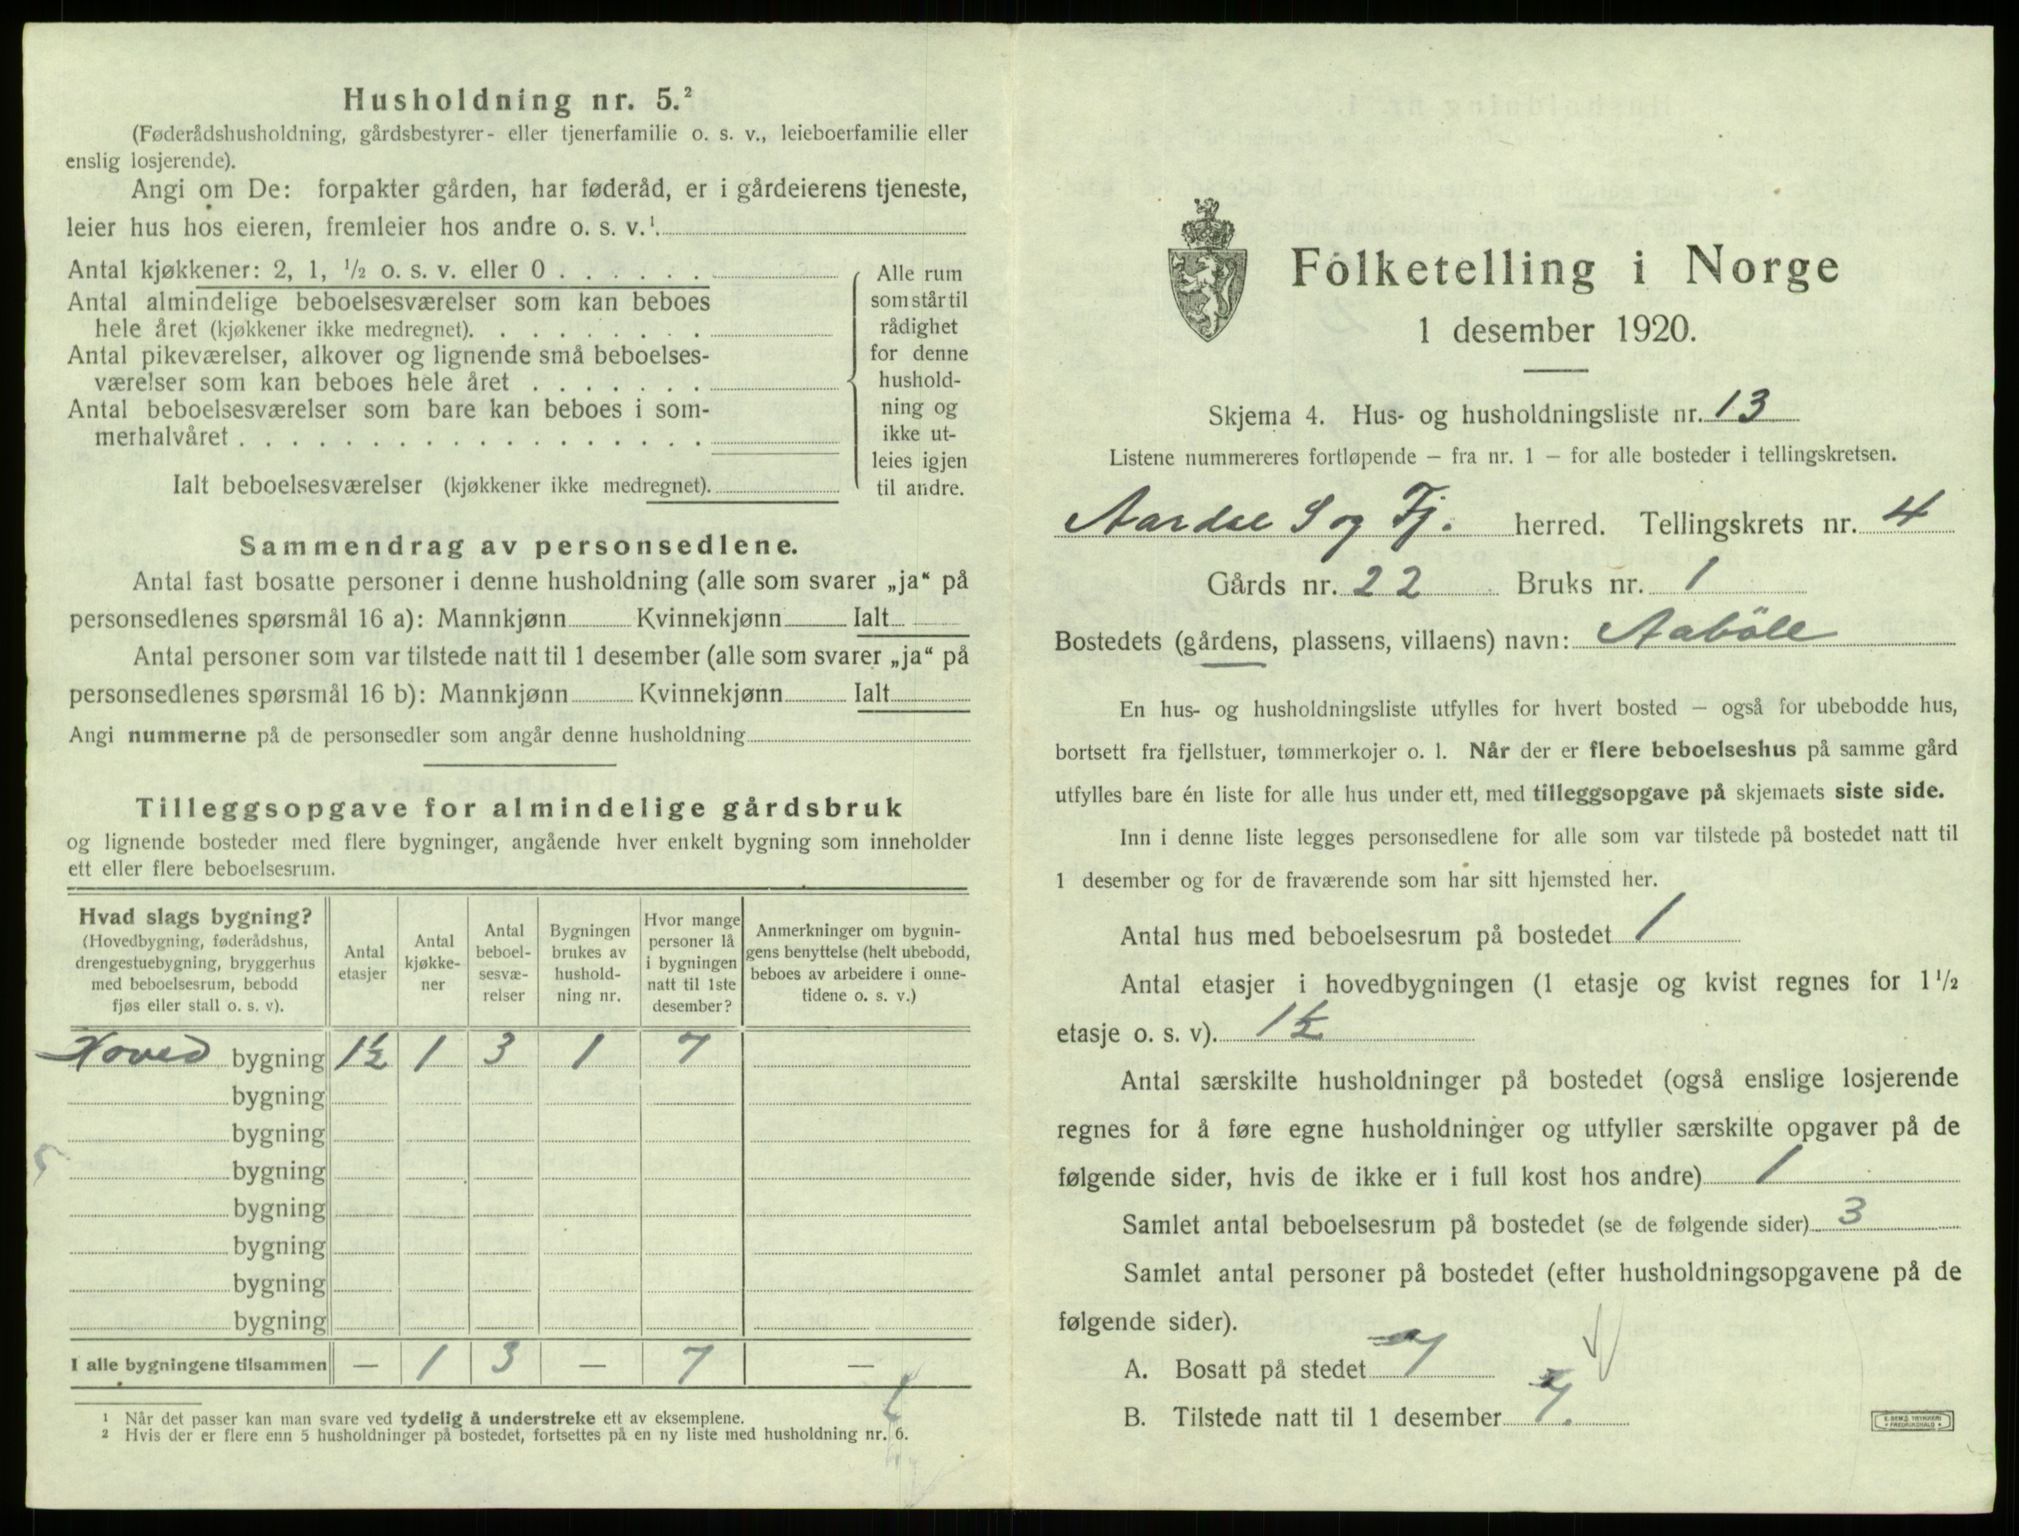 Husholdning nr. 5.²
(Føderådshusholdning, gårdsbestyrer- eller tjenerfamilie o. s. v., leieboerfamilie eller
enslig losjerende).
Angi om De: forpakter gården, har føderåd, er i gårdeierens tjeneste,
leier hus hos eieren, fremleier hos andre o. s. v.¹.
Antal kjøkkener: 2, 1, ½ o. s. v. eller 0 . . . . . .
Antal almindelige beboelsesværelser som kan beboes
hele året (kjøkkener ikke medregnet). . . . . . . . .
Antal pikeværelser, alkover og lignende små beboelses-
værelser som kan beboes hele året . . . . . . .
Antal beboelsesværelser som bare kan beboes i som-
merhalvåret . . . . . . . . . . . . . . . . . .
Ialt beboelsesværelser (kjøkkener ikke medregnet).
Alle rum
som står til
rådighet
for denne
hushold-
ning og
ikke ut-
leies igjen
til andre.
Sammendrag av personsedlene.
Antal fast bosatte personer i denne husholdning (alle som svarer „ja“ på
personsedlenes spørsmål 16 a): Mannkjønn Kvinnekjønn Ialt
Antal personer som var tilstede natt til 1 desember (alle som svarer „ja“ på
personsedlenes spørsmål 16 b): Mannkjønn Kvinnekjønn Ialt
Angi nummerne på de personsedler som angår denne husholdning
Tilleggsopgave for almindelige gårdsbruk
og lignende bosteder med flere bygninger, angående hver enkelt bygning som inneholder
ett eller flere beboelsesrum.
Hvad slags bygning?
(Hovedbygning, føderådshus,
drengestuebygning, bryggerhus
med beboelsesrum, bebodd
fjøs eller stall o. s. v).
Antal
etasjer
Antal
kjøkke-
ner
Antal
beboel-
sesvæ-
relser
Bygningen
brukes av
hushold-
ning nr.
Hvor mange
personer lå
i bygningen
natt til 1ste
desember?
Anmerkninger om bygnin-
gens benyttelse (helt ubebodd,
beboes av arbeidere i onne-
tidene o. s. v.)
Hoved bygning 1½ 1 3 1 7
bygning
bygning
bygning
bygning
bygning
bygning
bygning
I alle bygningene tilsammen — 1 3 — 7 —
¹ Når det passer kan man svare ved tydelig å understreke ett av eksemplene.
² Hvis der er flere enn 5 husholdninger på bostedet, fortsettes på en ny liste med husholdning nr. 6.
Folketelling i Norge
1 desember 1920.
Skjema 4. Hus- og husholdningsliste nr. 13
Listene nummereres fortløpende — fra nr. 1 — for alle bosteder i tellingskretsen.
Aardal S og Fj. herred. Tellingskrets nr. 4
Gårds nr. 22 Bruks nr. 1
Bostedets (gårdens, plassens, villaens) navn: Aaböle
En hus- og husholdningsliste utfylles for hvert bosted — også for ubebodde hus,
bortsett fra fjellstuer, tømmerkojer o. l. Når der er flere beboelseshus på samme gård
utfylles bare én liste for alle hus under ett, med tilleggsopgave på skjemaets siste side.
Inn i denne liste legges personsedlene for alle som var tilstede på bostedet natt til
1 desember og for de fraværende som har sitt hjemsted her.
Antal hus med beboelsesrum på bostedet 1
Antal etasjer i hovedbygningen (1 etasje og kvist regnes for 1½
etasje o. s. v). 1½
Antal særskilte husholdninger på bostedet (også enslige losjerende
regnes for å føre egne husholdninger og utfyller særskilte opgaver på de
følgende sider, hvis de ikke er i full kost hos andre) 1
Samlet antal beboelsesrum på bostedet (se de følgende sider) 3
Samlet antal personer på bostedet (efter husholdningsopgavene på de
følgende sider).
A. Bosatt på stedet 7
B. Tilstede natt til 1 desember 7.
E. SEM'S TRYKKERI
FREDRIKSHALD